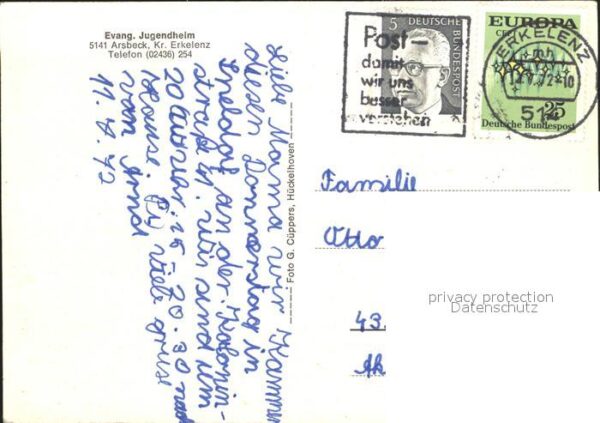 Evang. Jugendheim
5141 Arsbeck, Kr. Erkelenz
Telefon (02436) 254
Liebe Mama wir kommen
diesen Donnerstag in
Speldorf an der.
straße in. wir sind um
20 Uhr. 15 - 20.30 nach
Hause. viele grüse
von
11.7.72
Foto G. Cüppers, Hückelhoven
Post-
damit
wir uns
besser
verstehen
5
DEUTSCHE BUNDESPOST
EUROPA
CEPT
25
Deutsche Bundespost
ERKELENZ
514
Familie
Otto
43
privacy protection
Datenschutz